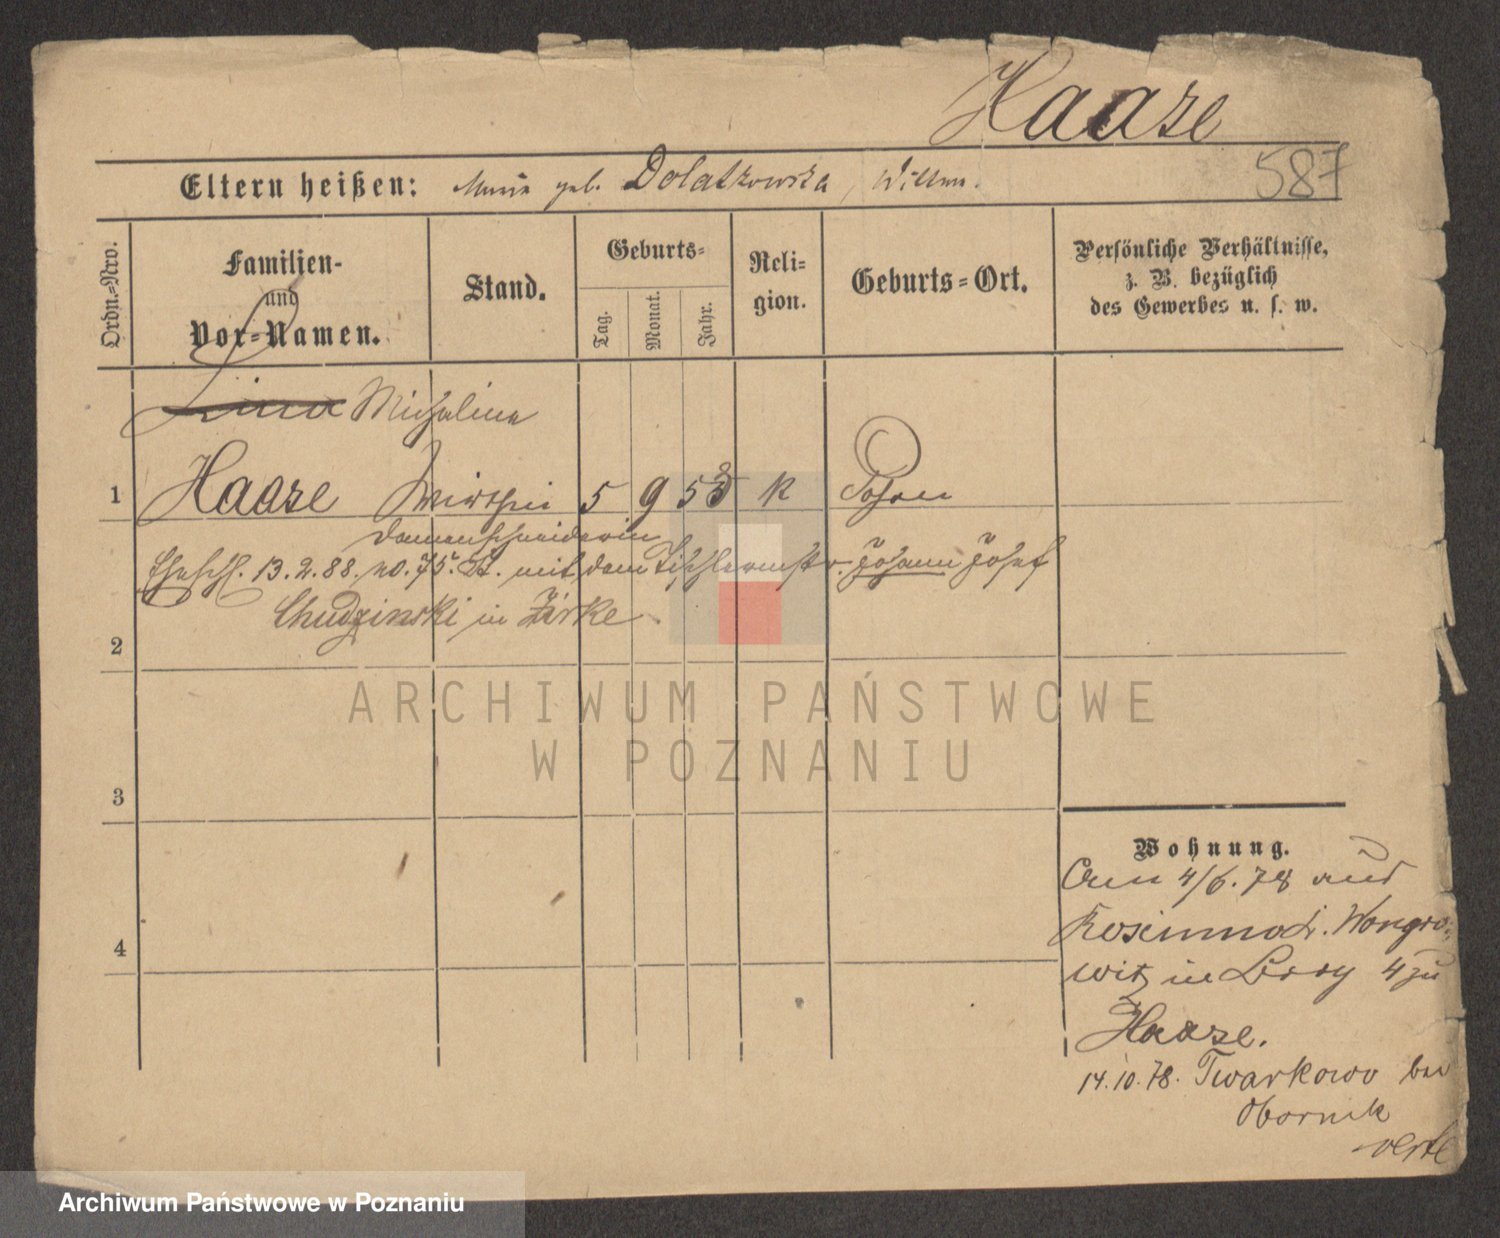 Haase
587
Eltern heißen: Maria geb. Dolatkowska, Wittwe.
Ordn.-Nro.
Familien-
und
Vor-Namen.
Stand.
Geburts-
Tag.
Monat.
Jahr.
Reli-
gion.
Geburts-Ort.
Persönliche Verhältnisse,
z. B. bezüglich
des Gewerbes u. s. w.
Michalina
1 Haase Wirthin 5 9 53 K Posen
Damenschneiderin
Eheschl. 13.2.88. No. 75. St. mit dem Tischlermstr. Johann Josef
Chudzinski in Zirke
2
3
4
Wohnung.
4/6. 78 aus
Wongro-
witz in 4 zu
Haase.
14.10.78. Twarkowo bei
Obornik
verte
ARCHIWUM PAŃSTWOWE
W POZNANIU
Archiwum Państwowe w Poznaniu